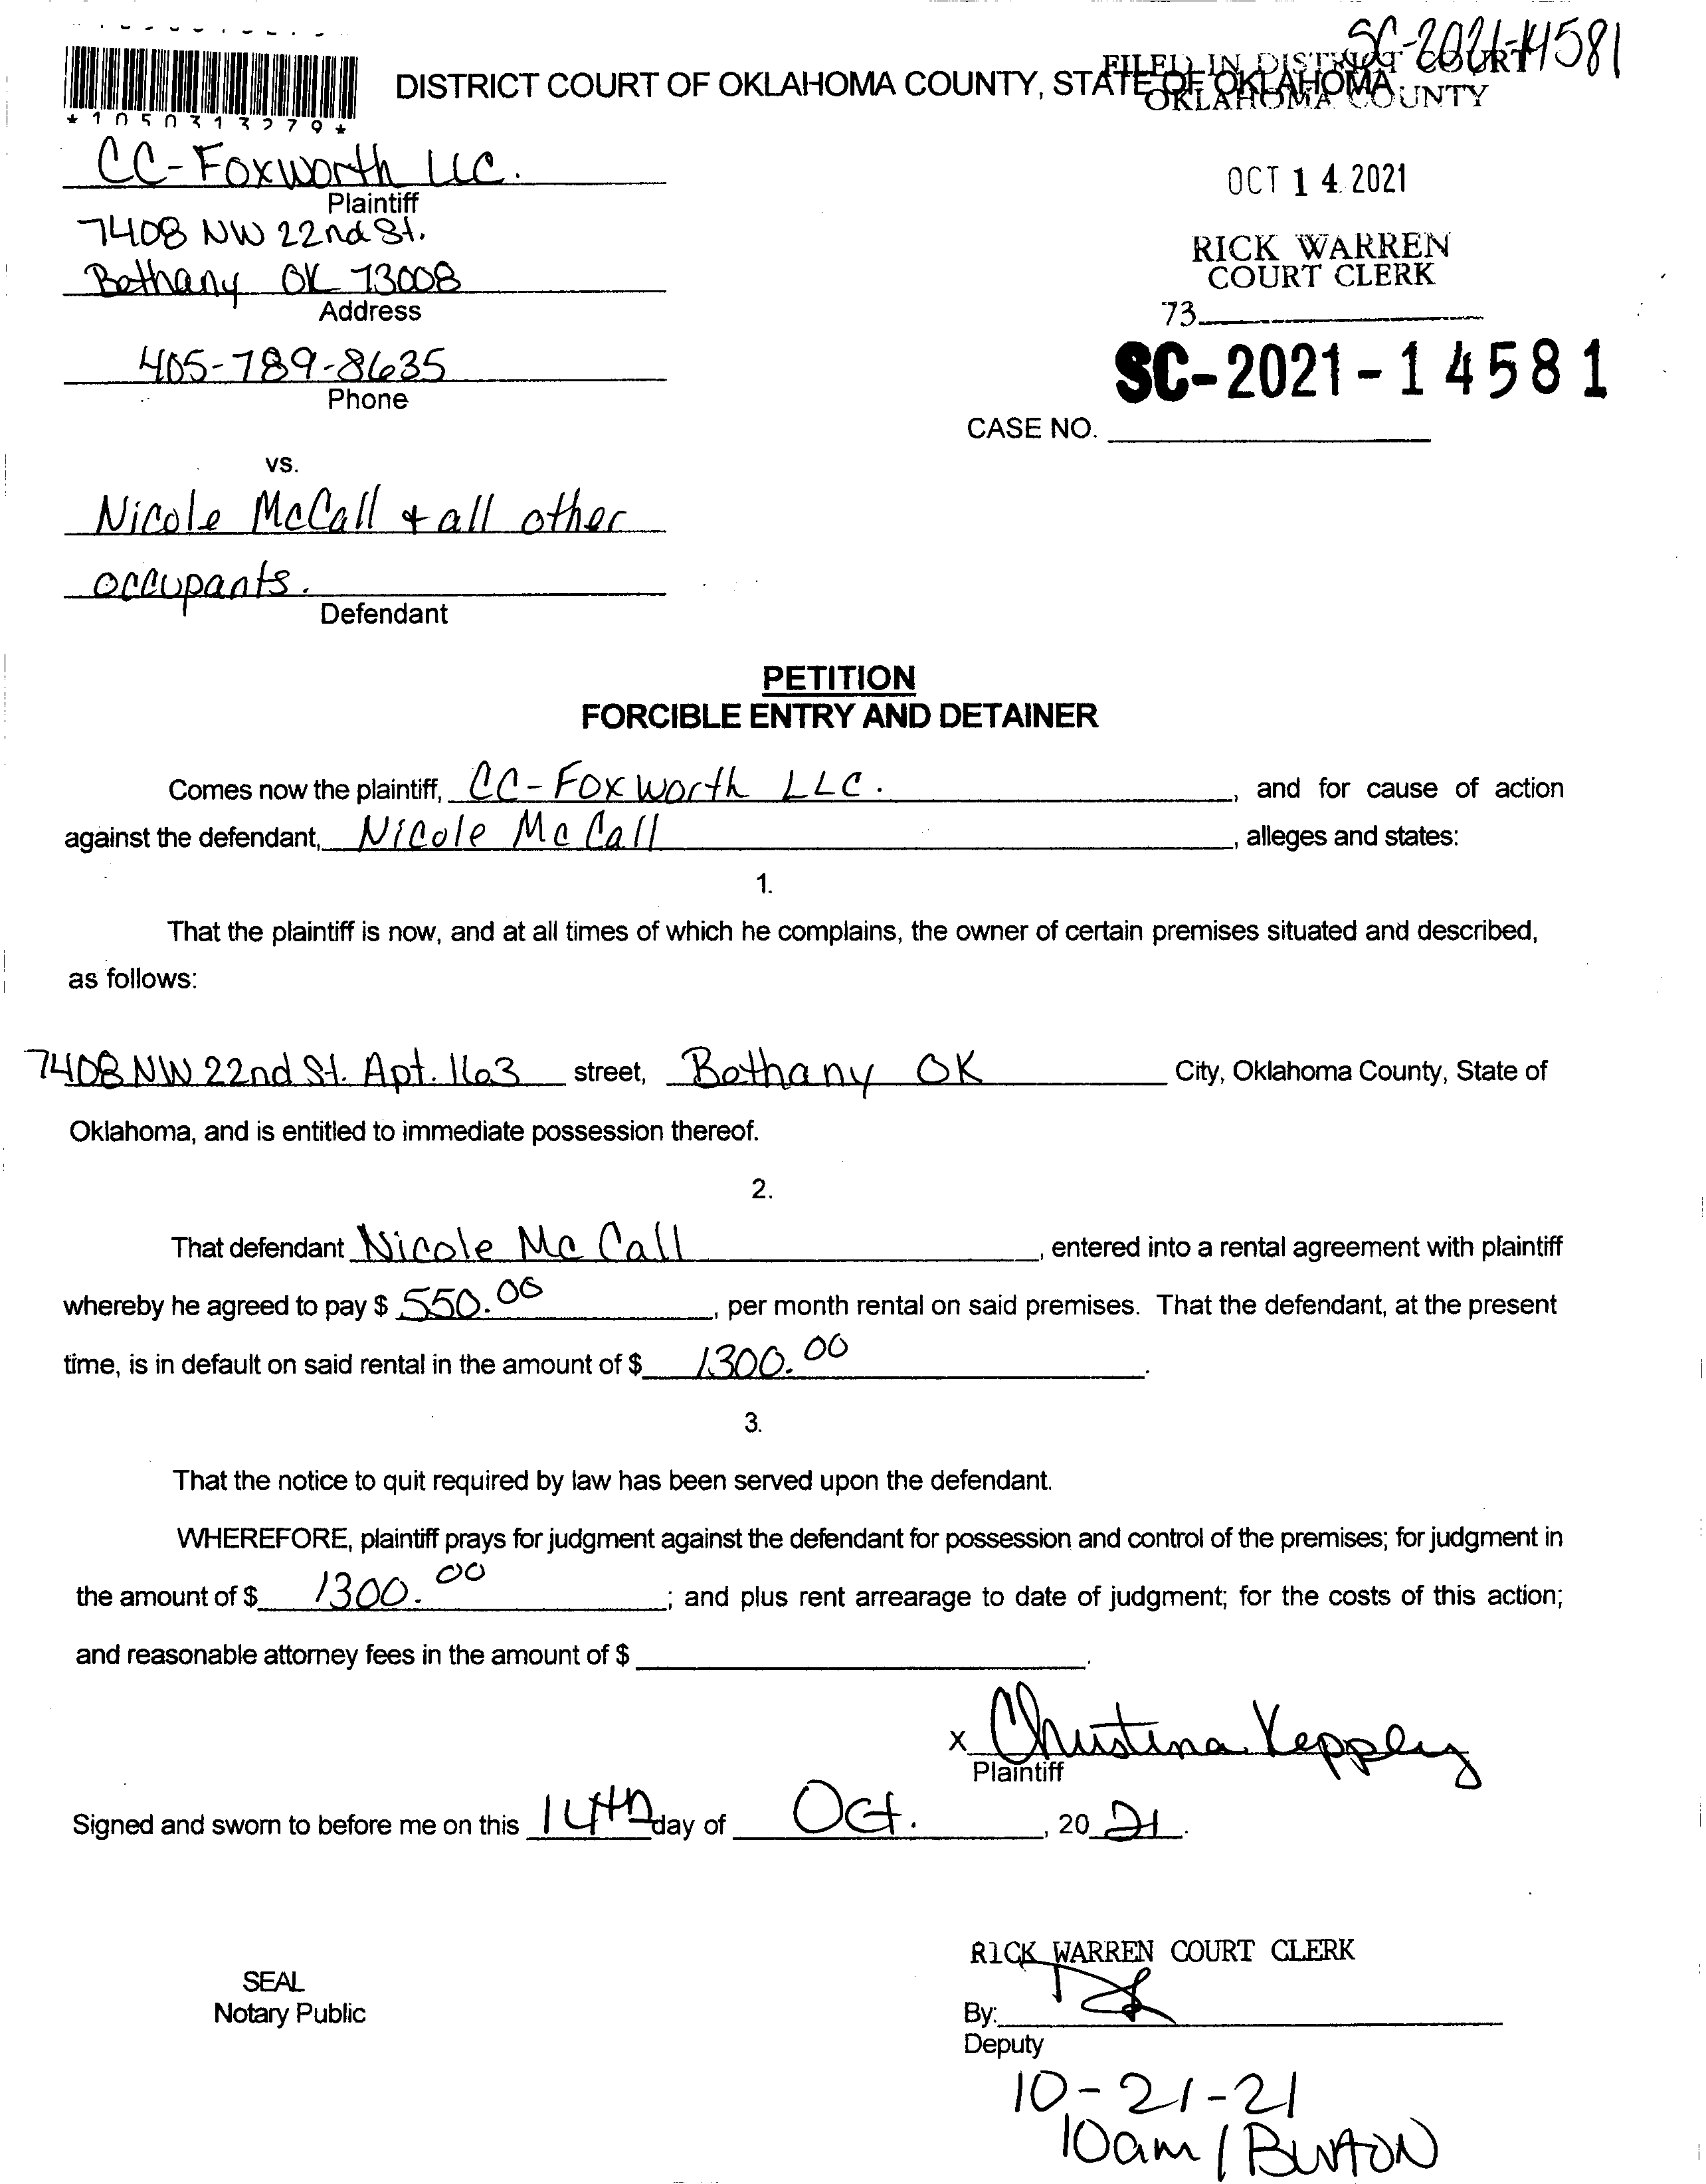 SC-2021-14581
FILED IN DISTRICT COURT
DISTRICT COURT OF OKLAHOMA COUNTY, STATE OF OKLAHOMA
OKLAHOMA COUNTY
*1050313279*
CC-Foxworth LLC.
Plaintiff
OCT 14 2021
7408 NW 22nd St.
RICK WARREN
Bethany OK 73008
COURT CLERK
Address
73
405-789-8635
Phone
SC-2021-14581
CASE NO.
vs.
Nicole McCall + all other
occupants.
Defendant
PETITION
FORCIBLE ENTRY AND DETAINER
Comes now the plaintiff, CC-Foxworth LLC. , and for cause of action
against the defendant, Nicole McCall , alleges and states:
1.
That the plaintiff is now, and at all times of which he complains, the owner of certain premises situated and described,
as follows:
7408 NW 22nd St. Apt. 163 street, Bethany OK City, Oklahoma County, State of
Oklahoma, and is entitled to immediate possession thereof.
2.
That defendant Nicole McCall , entered into a rental agreement with plaintiff
whereby he agreed to pay $ 550.00 , per month rental on said premises. That the defendant, at the present
time, is in default on said rental in the amount of $ 1300.00 .
3.
That the notice to quit required by law has been served upon the defendant.
WHEREFORE, plaintiff prays for judgment against the defendant for possession and control of the premises; for judgment in
the amount of $ 1300.00 ; and plus rent arrearage to date of judgment; for the costs of this action;
and reasonable attorney fees in the amount of $ .
x Christina Yeppley
Plaintiff
Signed and sworn to before me on this 14th day of Oct. , 20 21 .
RICK WARREN COURT CLERK
SEAL
Notary Public
By:
Deputy
10-21-21
10am / BURTON